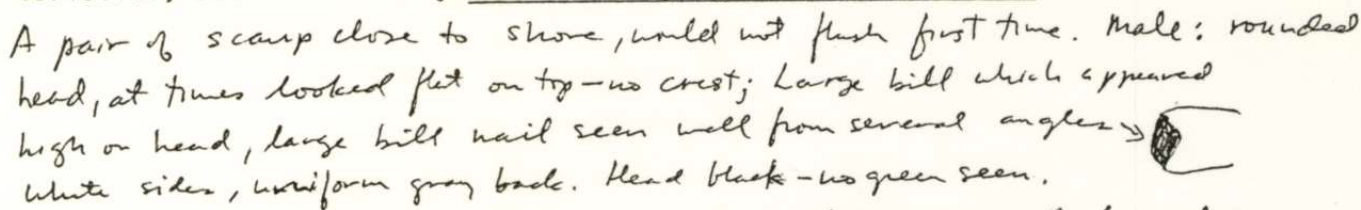 A pair of scaup close to shore, would not flush first time. Male: rounded
head, at times looked flat on top - no crest; Large bill which appeared
high on head, large bill nail seen well from several angles →
White sides, uniform gray back. Head black - no green seen.